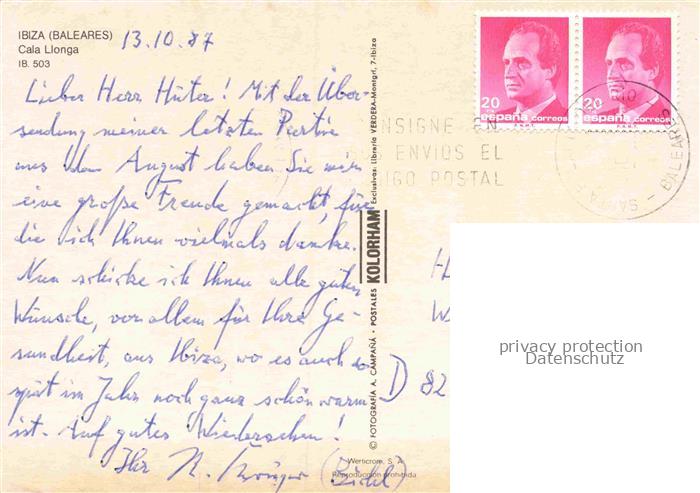 IBIZA (BALEARES)
Cala Llonga
IB. 503
13.10.87
Lieber Herr Hüter! Mit der Über-
sendung meiner letzten Partie
aus dem August haben Sie mir
eine große Freude gemacht, für
die ich Ihnen vielmals danke.
Nun schicke ich Ihnen alle guten
Wünsche, vor allem für Ihre Ge-
sundheit, aus Ibiza, wo es auch so
spät im Jahr noch ganz schön warm
ist. Auf gutes Wiedersehen!
Ihr
Werticrom, S. A.
Reproducción prohibida
© FOTOGRAFÍA A. CAMPAÑÁ • POSTALES KOLORHAM Exclusivas: Librería VERDERA-Montgrí, 7-Ibiza
20 españa correos
20 españa correos
CONSIGNE EN
SUS ENVIOS EL
CODIGO POSTAL
BALEARES
D 82
privacy protection
Datenschutz